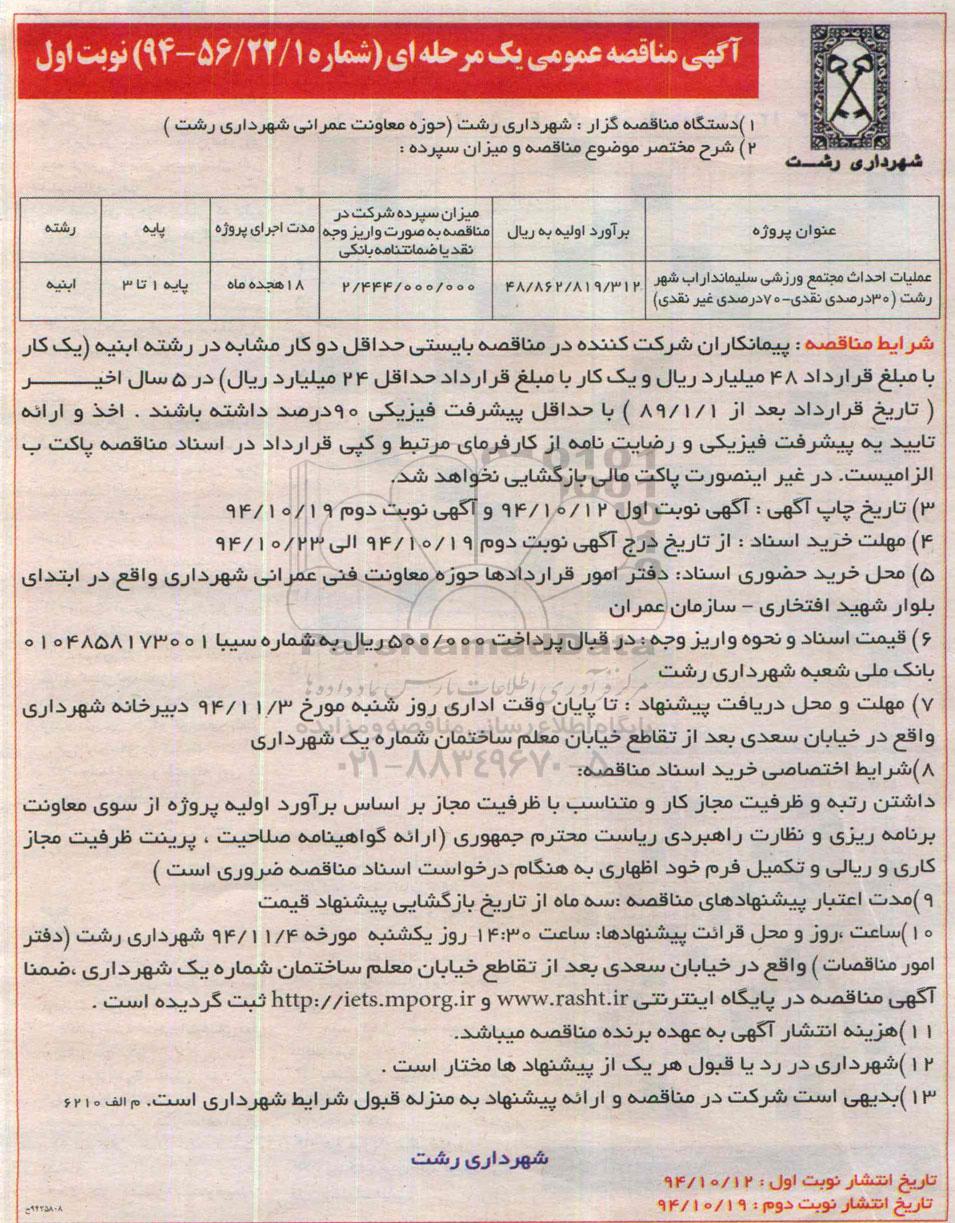 آگهی مناقصه عمومی یک مرحله ای (شماره ۵۶/۲۲/۱-۹۴) نوبت اول
شهرداری رشت
۱)دستگاه مناقصه گزار : شهرداری رشت (حوزه معاونت عمرانی شهرداری رشت )
۲) شرح مختصر موضوع مناقصه و میزان سپرده :
عنوان پروژه
برآورد اولیه به ریال
میزان سپرده شرکت در مناقصه به صورت واریز وجه نقد یا ضمانتنامه بانکی
مدت اجرای پروژه
پایه
رشته
عملیات احداث مجتمع ورزشی سلیمانداراب شهر رشت (۳۰درصدی نقدی-۷۰درصدی غیر نقدی)
۴۸/۸۶۲/۸۱۹/۳۱۲
۲/۴۴۴/۰۰۰/۰۰۰
۱۸هجده ماه
پایه ۱ تا ۳
ابنیه
شرایط مناقصه : پیمانکاران شرکت کننده در مناقصه بایستی حداقل دو کار مشابه در رشته ابنیه (یک کار
با مبلغ قرارداد ۴۸ میلیارد ریال و یک کار با مبلغ قرارداد حداقل ۲۴ میلیارد ریال) در ۵ سال اخیر
( تاریخ قرارداد بعد از ۸۹/۱/۱ ) با حداقل پیشرفت فیزیکی ۹۰درصد داشته باشند . اخذ و ارائه
تایید یه پیشرفت فیزیکی و رضایت نامه از کارفرمای مرتبط و کپی قرارداد در اسناد مناقصه پاکت ب
الزامیست. در غیر اینصورت پاکت مالی بازگشایی نخواهد شد.
۳) تاریخ چاپ آگهی : آگهی نوبت اول ۹۴/۱۰/۱۲ و آگهی نوبت دوم ۹۴/۱۰/۱۹
۴) مهلت خرید اسناد : از تاریخ درج آگهی نوبت دوم ۹۴/۱۰/۱۹ الی ۹۴/۱۰/۲۳
۵) محل خرید حضوری اسناد: دفتر امور قراردادها حوزه معاونت فنی عمرانی شهرداری واقع در ابتدای
بلوار شهید افتخاری - سازمان عمران
۶) قیمت اسناد و نحوه واریز وجه : در قبال پرداخت ۵۰۰/۰۰۰ ریال به شماره سیبا ۰۱۰۴۸۵۸۱۷۳۰۰۱
بانک ملی شعبه شهرداری رشت
۷) مهلت و محل دریافت پیشنهاد : تا پایان وقت اداری روز شنبه مورخ ۹۴/۱۱/۳ دبیرخانه شهرداری
واقع در خیابان سعدی بعد از تقاطع خیابان معلم ساختمان شماره یک شهرداری
۸)شرایط اختصاصی خرید اسناد مناقصه:
داشتن رتبه و ظرفیت مجاز کار و متناسب با ظرفیت مجاز بر اساس برآورد اولیه پروژه از سوی معاونت
برنامه ریزی و نظارت راهبردی ریاست محترم جمهوری (ارائه گواهینامه صلاحیت ، پرینت ظرفیت مجاز
کاری و ریالی و تکمیل فرم خود اظهاری به هنگام درخواست اسناد مناقصه ضروری است )
۹)مدت اعتبار پیشنهادهای مناقصه :سه ماه از تاریخ بازگشایی پیشنهاد قیمت
۱۰)ساعت ،روز و محل قرائت پیشنهادها: ساعت ۱۴:۳۰ روز یکشنبه مورخه ۹۴/۱۱/۴ شهرداری رشت (دفتر
امور مناقصات ) واقع در خیابان سعدی بعد از تقاطع خیابان معلم ساختمان شماره یک شهرداری ،ضمنا
آگهی مناقصه در پایگاه اینترنتی www.rasht.ir و http://iets.mporg.ir ثبت گردیده است .
۱۱)هزینه انتشار آگهی به عهده برنده مناقصه میباشد.
۱۲)شهرداری در رد یا قبول هر یک از پیشنهاد ها مختار است .
۱۳)بدیهی است شرکت در مناقصه و ارائه پیشنهاد به منزله قبول شرایط شهرداری است. م الف ۶۲۱۰
شهرداری رشت
تاریخ انتشار نوبت اول : ۹۴/۱۰/۱۲
تاریخ انتشار نوبت دوم : ۹۴/۱۰/۱۹
ParsNamadData
مرکز فرآوری اطلاعات پارس نماد داده ها
پایگاه اطلاع رسانی مناقصه و مزایده
۰۲۱-۸۸۳۴۹۶۷۰-۵